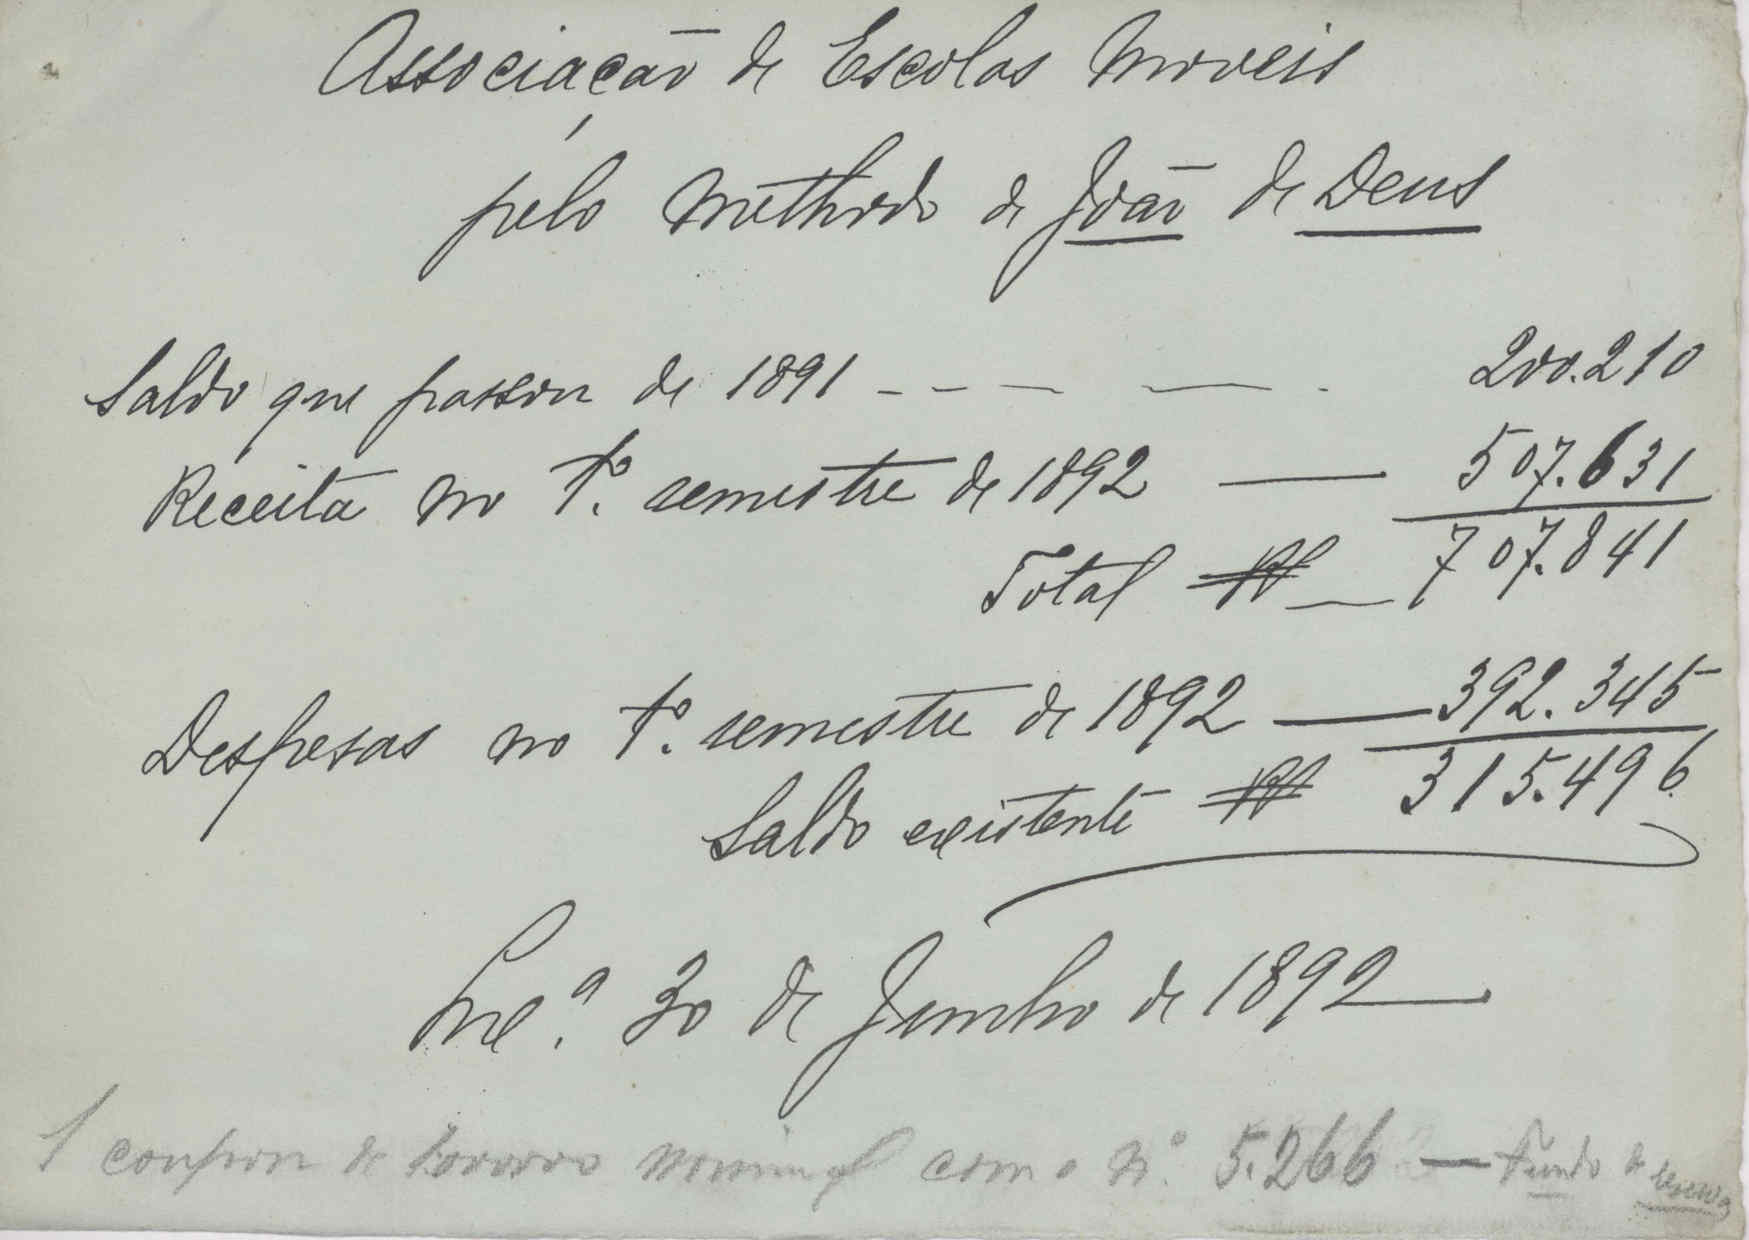 Associação de Escolas Moveis
pelo Methodo de João de Deus
Saldo que passou de 1891 - - — — . 200.210
Receita no 1º. semestre de 1892 — 507.631
Total Rs — 707.841
Despesas no 1º. semestre de 1892 — 392.345
Saldo existente Rs 315.496
30 de Junho de 1892
1 coupon de nominal com o Nº. 5.266 — Fundo de reserva